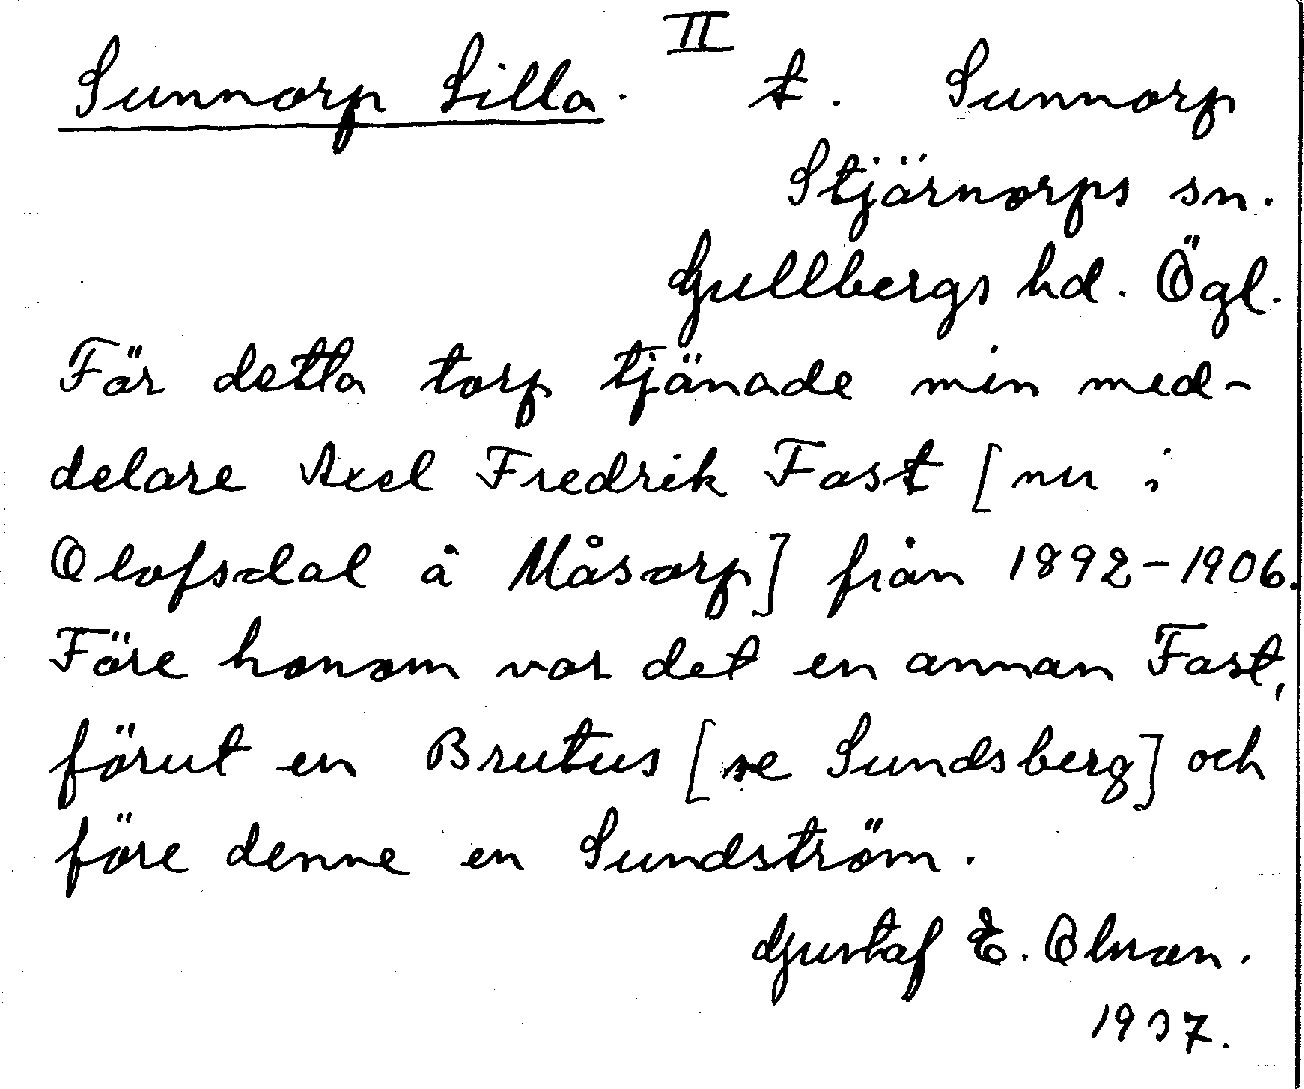 Sunnorp Lilla. II t. Sunnorp
Stjärnorps sn.
Gullbergs hd. Ögl.
För detta torp tjänade min med-
delare Axel Fredrik Fast [nu i
Olofsdal å Måsorp] från 1892-1906.
Före honom var det en annan Fast,
förut en Brutus [se Sundsberg] och
före denne en Sundström.
Gustaf E. Olson.
1937.